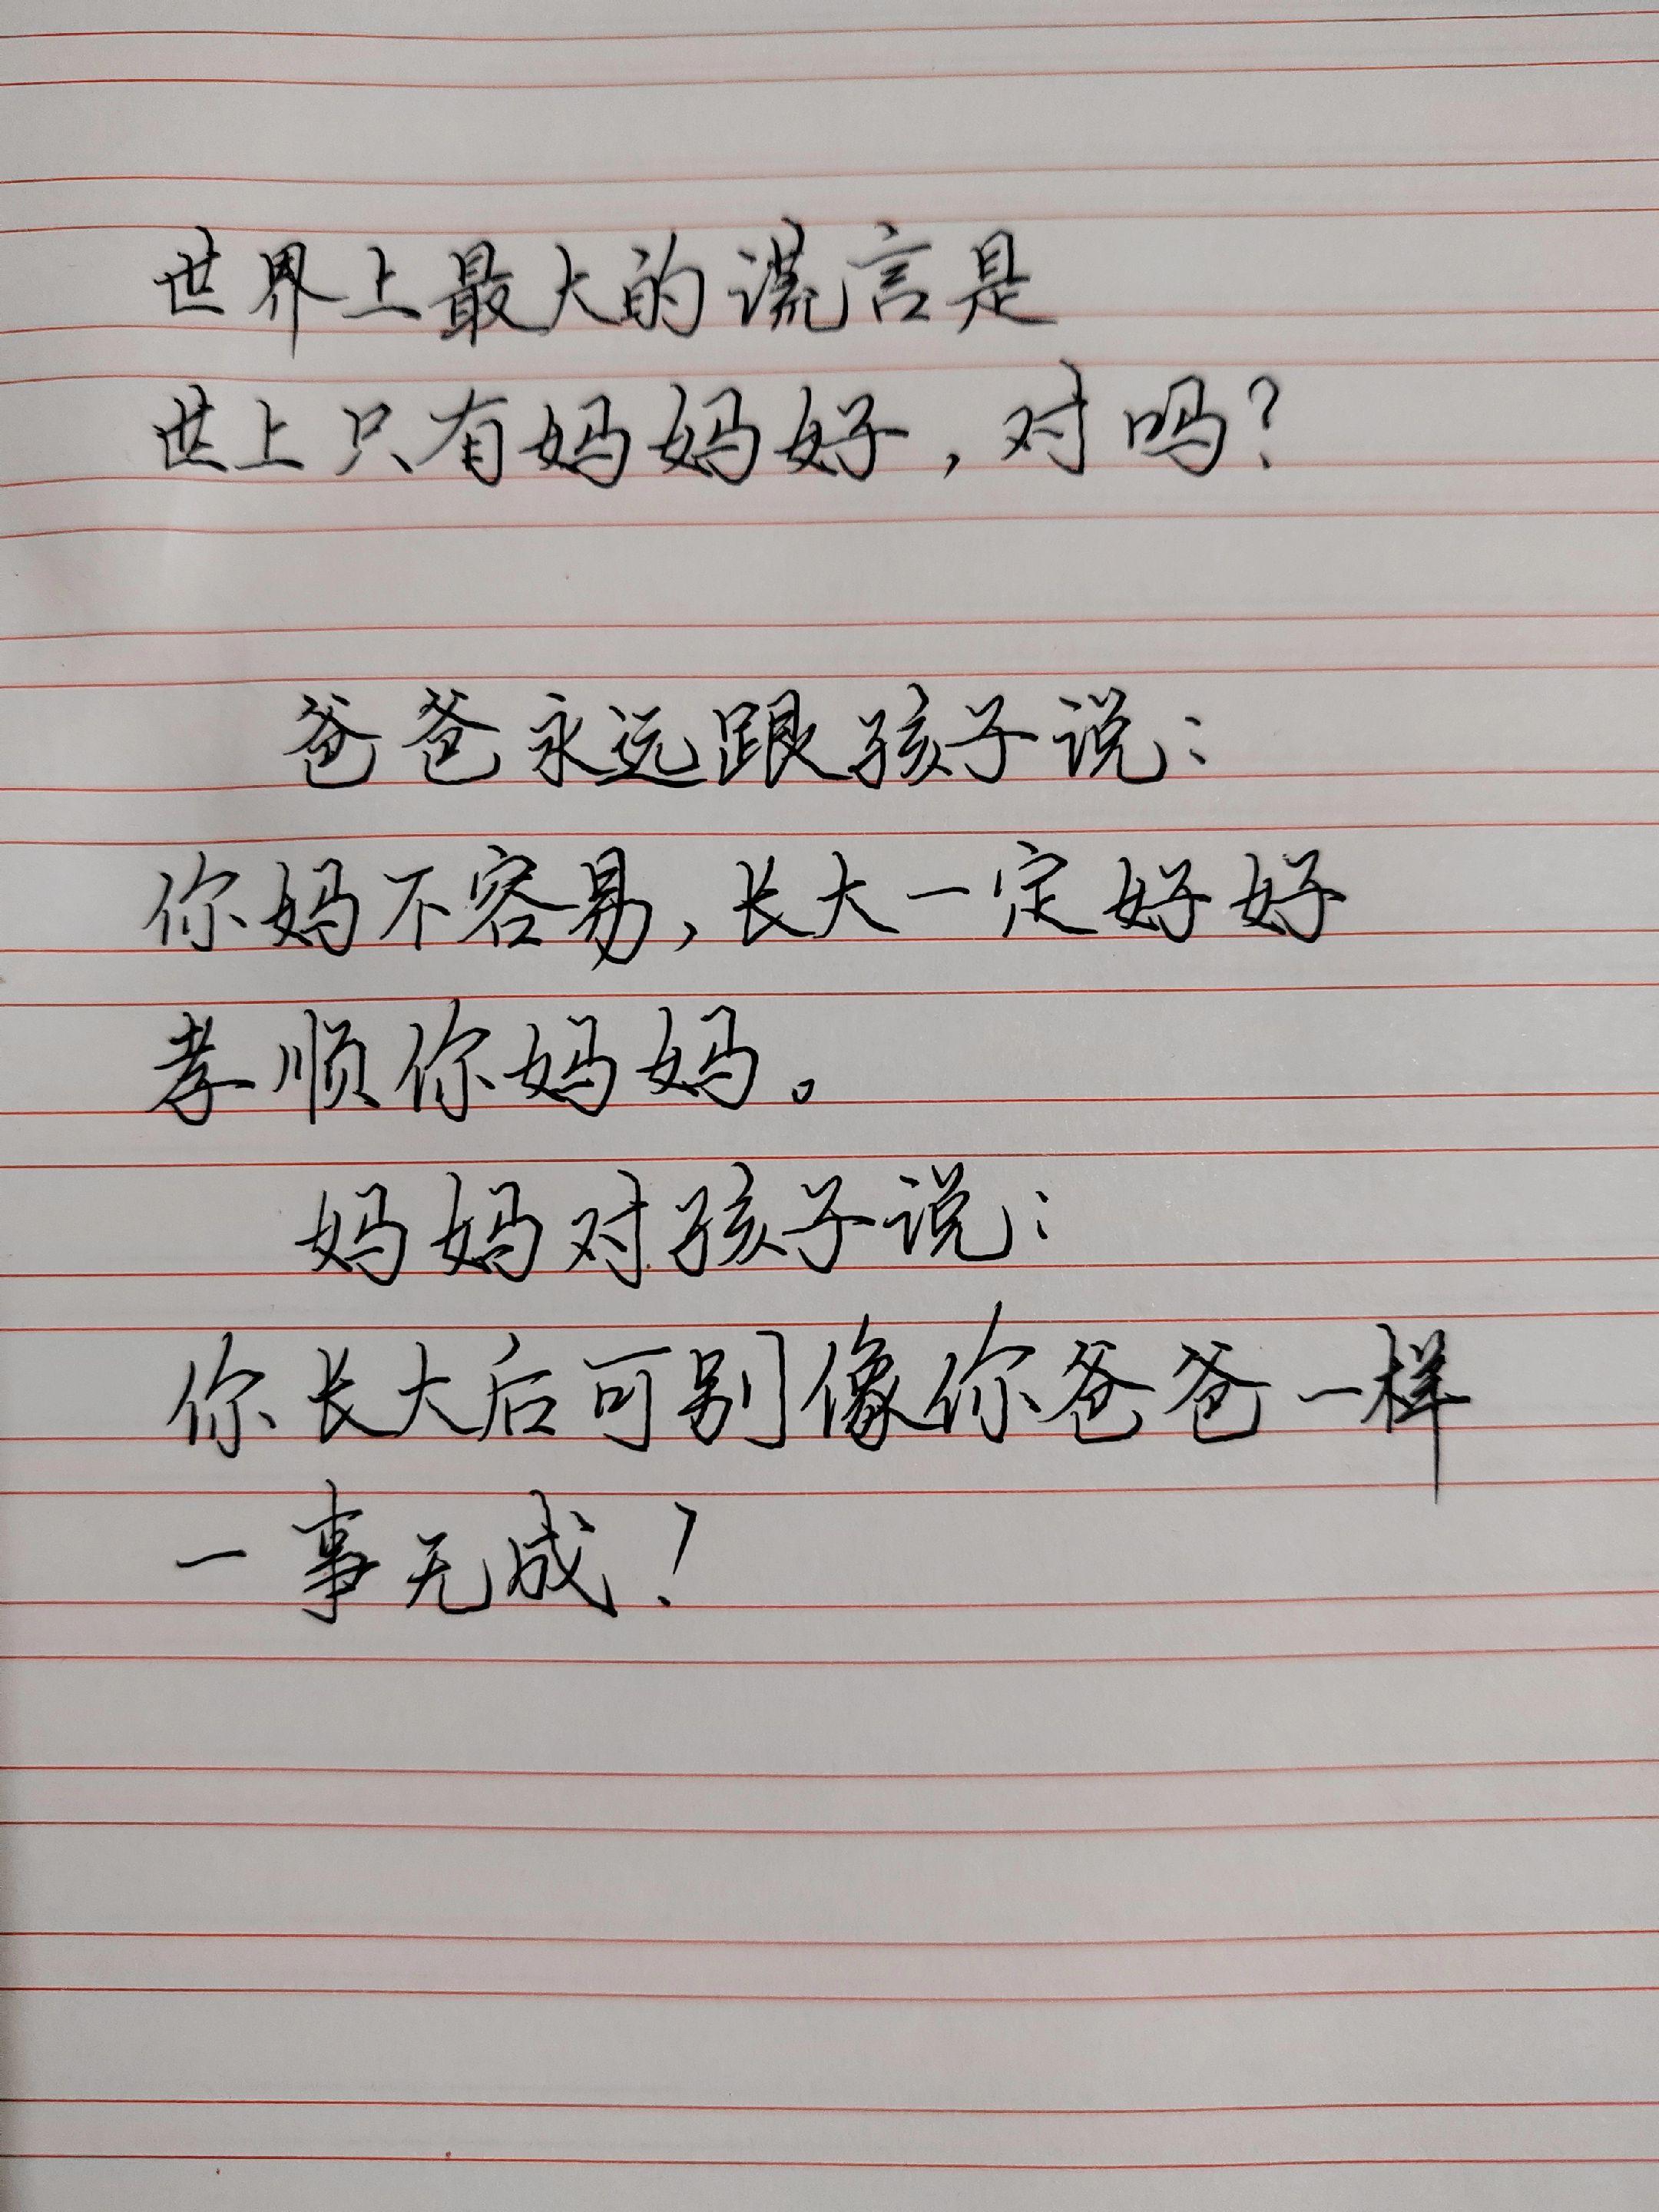 世界上最大的谎言是
世上只有妈妈好，对吗？
爸爸永远跟孩子说：
你妈不容易，长大一定好好
孝顺你妈妈。
妈妈对孩子说：
你长大后可别像你爸爸一样
一事无成！